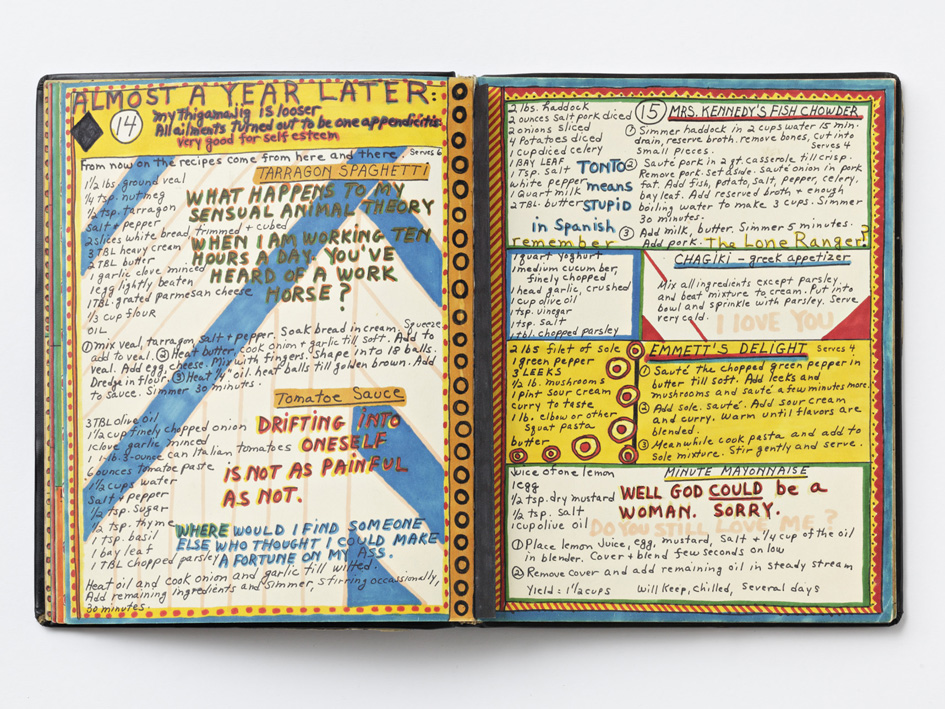 ALMOST A YEAR LATER:
14
my thigamajig is looser
All ailments turned out to be one appendicitis.
Very good for self esteem
From now on the recipes come from here and there. Serves 6
TARRAGON SPAGHETTI
1 1/2 lbs. ground veal
1/4 tsp. nutmeg
1/2 tsp. tarragon
Salt + pepper
2 slices white bread, trimmed + cubed
3 TBL heavy cream
2 TBL butter
1 garlic clove minced
1 egg lightly beaten
1 TBL. grated parmesan cheese
1/3 cup flour
OIL
WHAT HAPPENS TO MY
SENSUAL ANIMAL THEORY
WHEN I AM WORKING TEN
HOURS A DAY. YOU'VE
HEARD OF A WORK
HORSE?
① Mix veal, tarragon, salt + pepper. Soak bread in cream. Squeeze
add to veal. ② Heat butter, cook onion + garlic till soft. Add to
veal. Add egg, cheese. Mix with fingers. Shape into 18 balls.
Dredge in flour. ③ Heat 1/4" oil. heat till golden brown. Add
to sauce. Simmer 30 minutes.
Tomatoe Sauce
3 TBL olive oil
1 1/2 cup finely chopped onion
1 clove garlic minced
1 1-lb. 3-ounce can Italian tomatoes
6 ounces tomatoe paste
1 1/2 cups water
Salt + pepper
1/2 tsp. Sugar
1/2 tsp. thyme
1 tsp. basil
1 bay leaf
1 TBL chopped parsley
DRIFTING INTO
ONESELF
IS NOT AS PAINFUL
AS NOT.
WHERE WOULD I FIND SOMEONE
ELSE WHO THOUGHT I COULD MAKE
A FORTUNE ON MY ASS.
Heat oil and cook onion and garlic till wilted.
Add remaining ingredients and simmer, stirring occassionally,
30 minutes.
15 MRS. KENNEDY'S FISH CHOWDER
2 lbs. haddock
2 ounces salt pork diced
2 onions sliced
4 potatoes diced
1 cup diced celery
1 BAY LEAF
1 Tsp. salt
white pepper
1 quart milk
2 TBL. butter
TONTO
means
STUPID
in Spanish
remember
The Lone Ranger?
① Simmer haddock in 2 cups water 15 min-
drain, reserve broth. remove bones, cut into
Small pieces. Serves 4
② Sauté pork in 2 qt. casserole till crisp.
Remove pork. Set aside. Saute onion in pork
fat. Add fish, potato, Salt, pepper, celery,
bay leaf. Add reserved broth + enough
boiling water to make 3 cups. Simmer
30 minutes.
③ Add milk, butter. Simmer 5 minutes.
Add pork.
CHAGIKI - greek appetizer
1 quart yoghurt
1 medium cucumber,
finely chopped
1 head garlic, crushed
1 cup olive oil
1 tsp. vinegar
1 tsp. salt
1 tbl. chopped parsley
Mix all ingredients except parsley,
and beat mixture to cream. Put into
bowl and sprinkle with parsley. Serve
very cold.
I LOVE YOU
EMMETT'S DELIGHT Serves 4
2 lbs filet of Sole
1 green pepper
3 LEEKS
1/2 lb. mushrooms
1 pint sour cream
curry to taste
1 lb. elbow or other
Squat pasta
butter
① Sauté the chopped green pepper in
butter till soft. Add leeks and
mushrooms and sauté a few minutes more.
② Add sole. sauté. Add sour cream
and curry. Warm until flavors are
blended.
③ Meanwhile cook pasta and add to
Sole mixture. Stir gently and serve.
MINUTE MAYONNAISE
Juice of one lemon
1 egg
1/2 tsp. dry mustard
1/2 tsp. salt
1 cup olive oil
WELL GOD COULD be a
WOMAN. SORRY.
DO YOU STILL LOVE ME?
① Place lemon Juice, egg, mustard, Salt + 1/4 cup of the oil
in blender. Cover + blend few seconds on low
② Remove cover and add remaining oil in steady stream
Yield = 1 1/2 cups Will keep, chilled, Several days